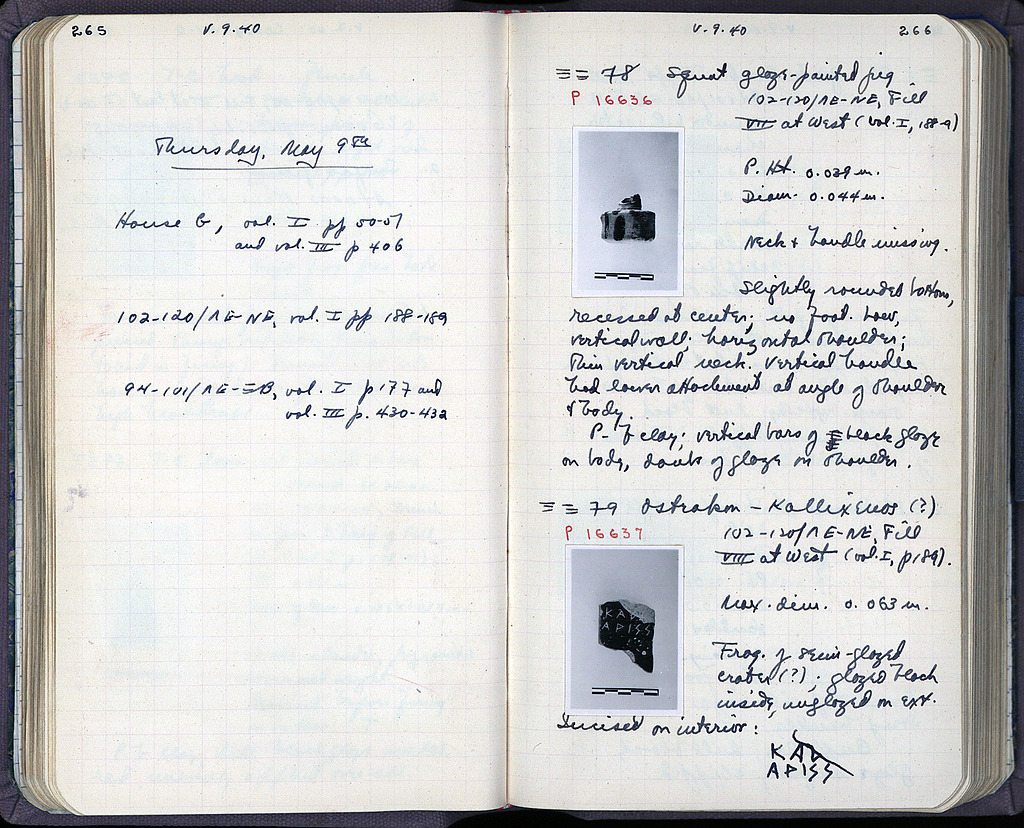 265
V. 9. 40
Thursday, May 9th
House G, vol. I pp 50-51
and vol. III p 406
102-120/ΛΕ-ΝΕ, vol. I pp 188-189
94-101/ΛΕ-ΞΒ, vol. I p 177 and
vol. III p. 430-432
V. 9. 40
266
ΞΞ 78 Squat glaze-painted jug
P 16636
102-120/ΛΕ-ΝΕ, Fill
VII at West (vol. I, 188-9)
P. Ht. 0.039 m.
Diam. 0.044 m.
Neck + handle missing.
Slightly rounded bottom,
recessed at center; no foot. Low,
vertical wall. horizontal shoulder;
thin vertical neck. Vertical handle
had lower attachment at angle of shoulder
+ body.
P- f clay; vertical bars of black glaze
on body, daubs of glaze on shoulder.
ΞΞ 79 Ostrakon - Kallixenos (?)
P 16637
102-120/ΛΕ-ΝΕ, Fill
VIII at West (vol. I, p 189).
Max. dim. 0.063 m.
Frag. of semi-glazed
crater (?); glazed black
inside, unglazed on ext.
Incised on interior:
ΚΑΛ
ΑΡΙSS